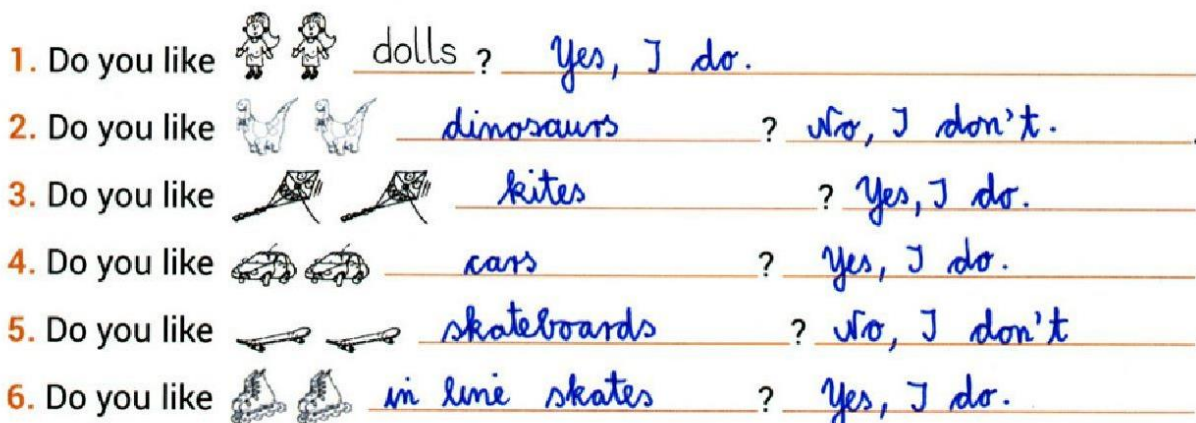 1. Do you like dolls ? Yes, I do.
2. Do you like dinosaurs ? No, I don't.
3. Do you like kites ? Yes, I do.
4. Do you like cars ? Yes, I do.
5. Do you like skateboards ? No, I don't
6. Do you like in line skates ? Yes, I do.